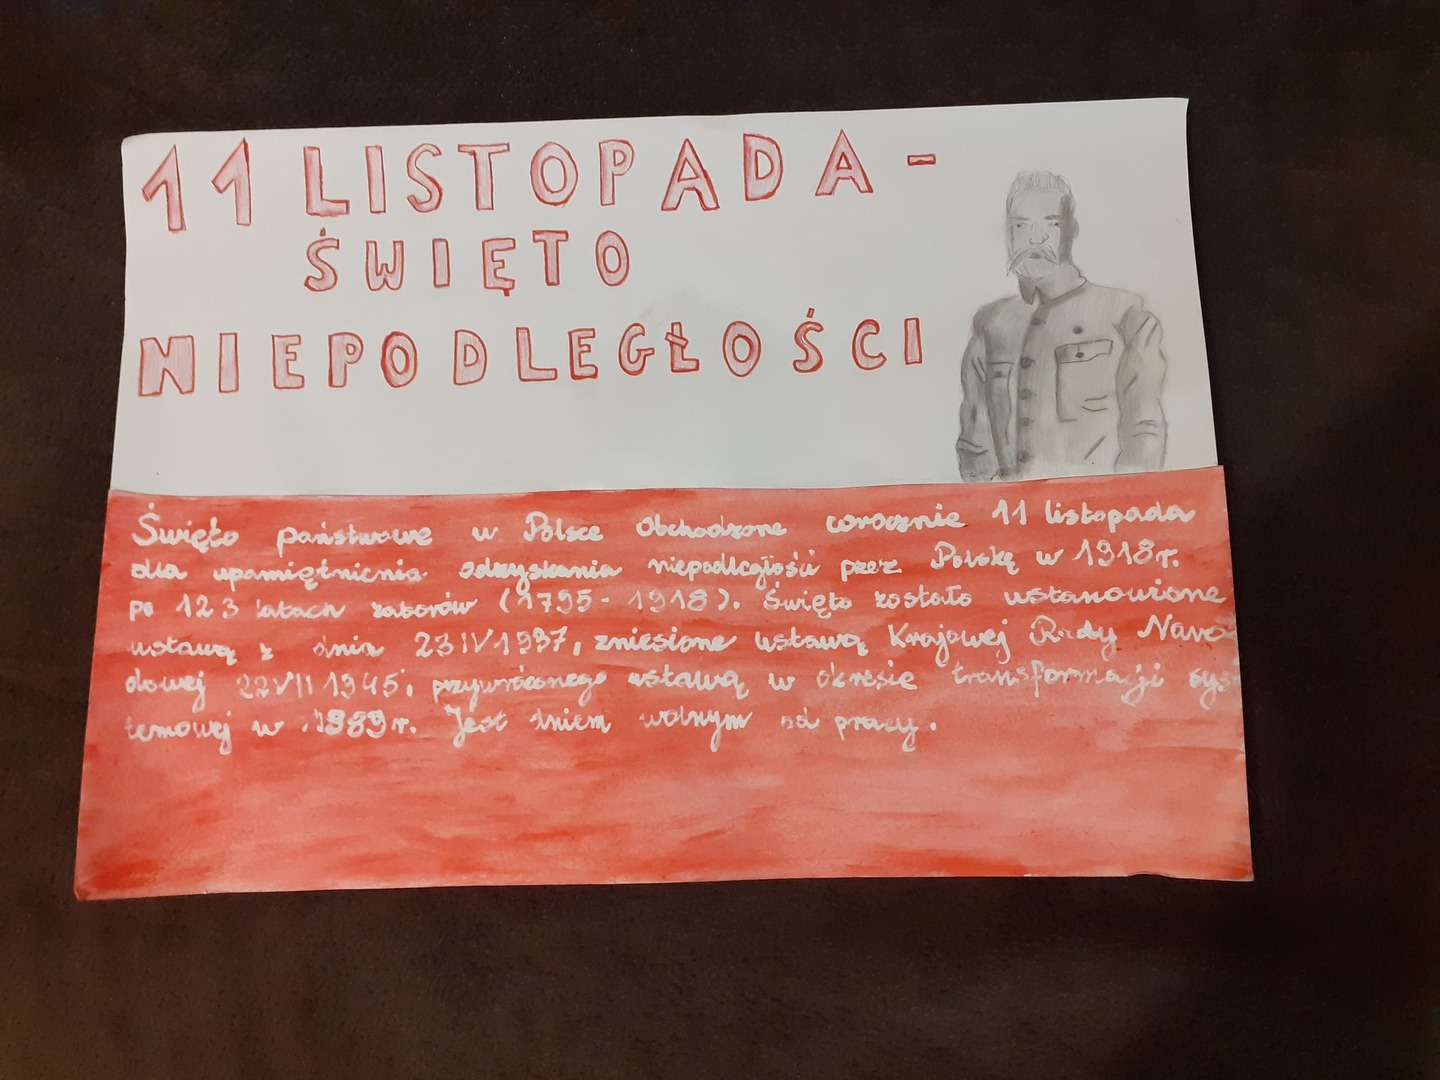 11 LISTOPADA -
ŚWIĘTO
NIEPODLEGŁOŚCI
Święto państwowe w Polsce obchodzone corocznie 11 listopada
dla upamiętnienia odzyskania niepodległości przez Polskę w 1918r.
po 123 latach zaborów (1795 - 1918). Święto zostało ustanowione
ustawą z dnia 23 IV 1937, zniesione ustawą Krajowej Rady Naro-
dowej 22 VII 1945, przywróconego ustawą w okresie transformacji sys-
temowej w 1989r. Jest dniem wolnym od pracy.